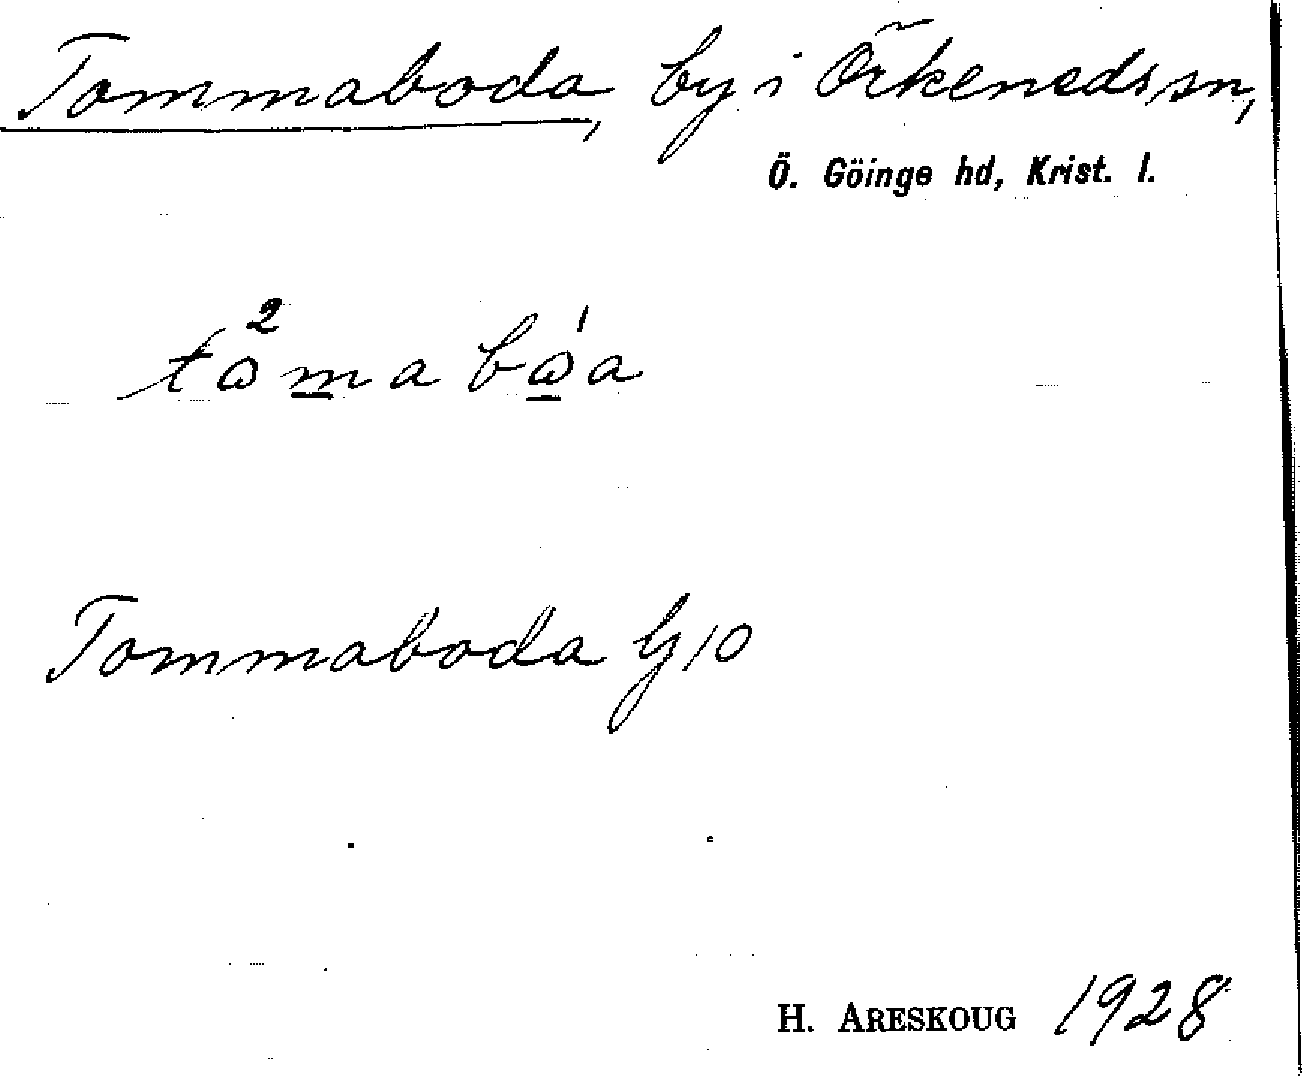 Tommaboda, by i Örkeneds sn,
Ö. Göinge hd, Krist. l.
Tommaboda G 10
H. ARESKOUG 1928